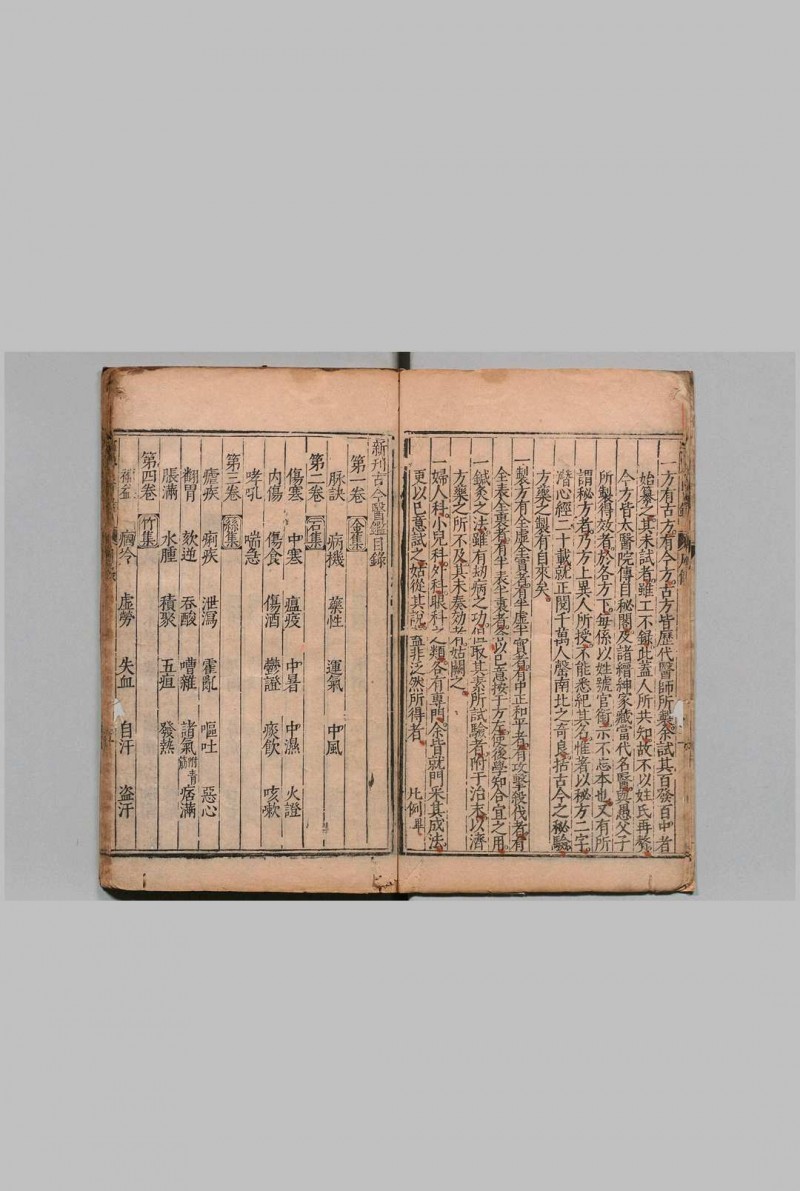 一方有古方有今方古方皆歷代醫師所製余試其百發百中者
始纂之其未試者雖工不錄此蓋人所共知故不以姓氏再贅
今方皆太醫院傳自秘閣及諸縉紳家藏當代名醫與愚父子
所製得效者於各方下每係以姓號官銜示不忘本也又有所
謂秘方者乃方上異人所授不能悉紀其名惟者以秘方二字
潛心經二十載就正閱千萬人聲南北之奇良括古今之秘驗
方藥之製有自來矣
一製方有全虛全實者有半虛半實者有中正和平者有攻擊殺伐者有
全表全裏者有半表半裏者余以己意按于方左使後學知合宜之用
一鍼灸之法雖有刼病之功但取其素所試驗者附于治末以濟
方藥之所不及其未奏効者姑闕之
一婦人科小兒科外科眼科之類各有專門余皆就門采其成法
更以已意試之姑從其說蓋非泛然所得者 凡例畢
新刊古今醫鑑目錄
第一卷 金集
脉訣 病機 藥性 運氣 中風
第二卷 石集
傷寒 中寒 瘟疫 中暑 中濕 火證
內傷 傷食 傷酒 鬱證 痰飲 咳嗽
哮吼 喘急
第三卷 絲集
瘧疾 痢疾 泄瀉 霍亂 嘔吐 惡心
翻胃 欬逆 吞酸 嘈雜 諸氣附青筋 痞滿
脹滿 水腫 積聚 五疸 發熱
第四卷 竹集
補益 痼冷 虛勞 失血 自汗 盜汗